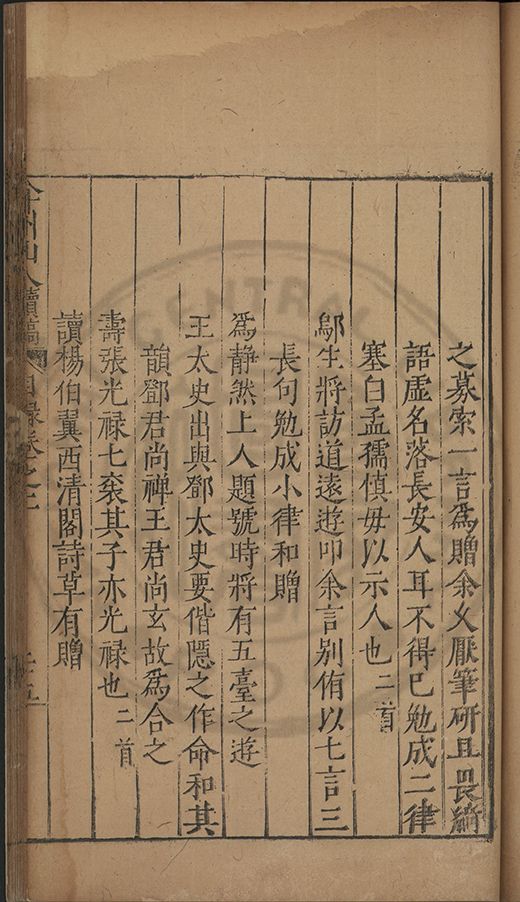 之募索一言為贈余久厭筆研且畏綺
語虛名落長安人耳不得已勉成二律
塞白孟孺慎毋以示人也二首
鄔生將訪道遠遊叩余言別侑以七言三
長句勉成小律和贈
為靜然上人題號時將有五臺之遊
王太史出與鄧太史要偕隱之作命和其
韻鄧君尚禪王君尚玄故為合之
壽張光祿七袠其子亦光祿也二首
讀楊伯翼西清閣詩草有贈
弇州山人續稿 目錄卷之二
CENTRAL